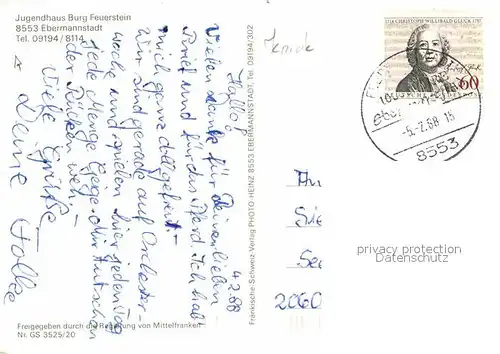 Jugendhaus Burg Feuerstein
8553 Ebermannstadt
Tel. 09194 / 8114
4.2.88
Hallo!
Vielen Dank für Deinen lieben
Brief und für das Pferd. Ich hab
mich ganz doll gefreut.
Wir sind gerade auf Orchester-
woche und spielen hier jeden Tag
jede Menge Geige
der Rücken weh.
Viele Grüße
Deine
Fränkische-Schweiz-Verlag PHOTO-HEINZ 8553 EBERMANNSTADT, Tel. 09194/302
CHRISTOPH WILLIBALD GLUCK
60
-5.2.88-15
8553
An
Sie
2060
privacy protection
Datenschutz
Freigegeben durch die Regierung von Mittelfranken
Nr. GS 3525/20